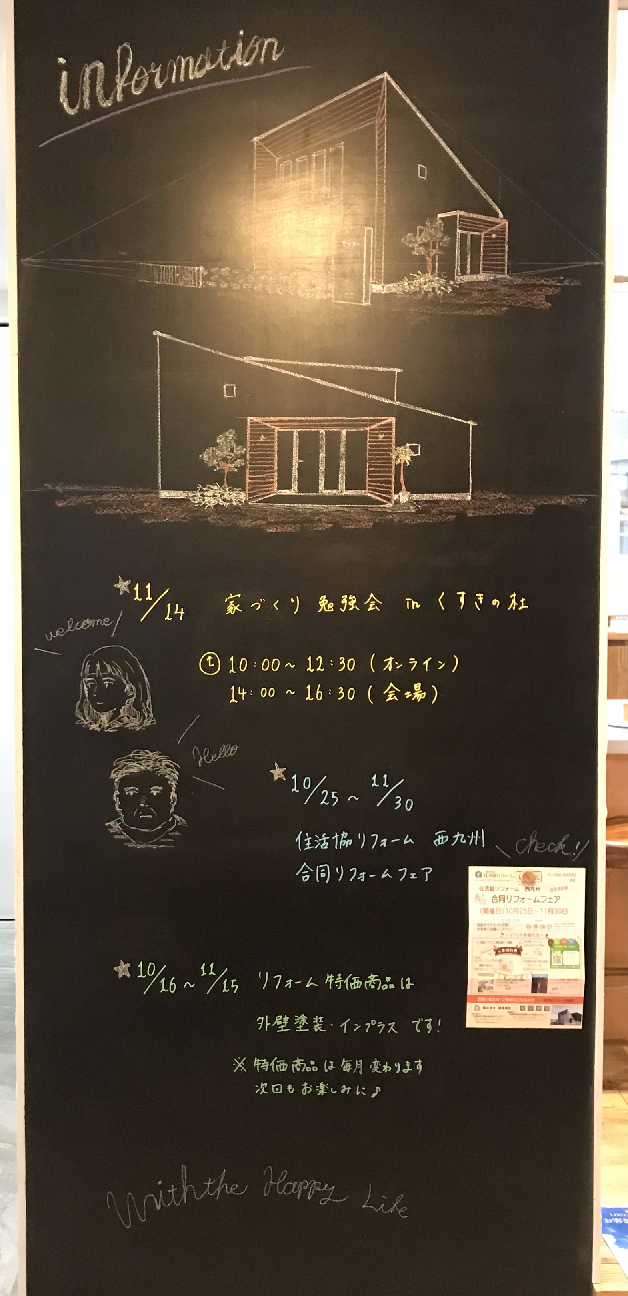 information
★11/14 家づくり 勉強会 in くすきの杜
welcome!
10:00～12:30 (オンライン)
14:00～16:30 (会場)
Hello
★10/25～11/30
住活協リフォーム 西九州
合同リフォームフェア
check!
住活協リフォーム 西九州
合同リフォームフェア
(開催日)10月25日～11月30日
★10/16～11/15 リフォーム特価商品は
外壁塗装・インプラス です!
※特価商品は毎月変わります
次回もお楽しみに♪
With the Happy Life